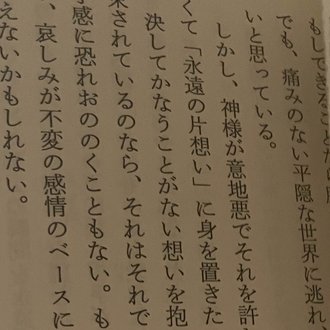 もしてき
でも、痛みのない平穏な世界に逃れ
いと思っている。
しかし、神様が意地悪でそれを許
くて「永遠の片想い」に身を置きた
決してかなうことがない想いを抱
されているのなら、それはそれで
予感に恐れおののくこともない。も
、哀しみが不変の感情のベースに
えないかもしれない。